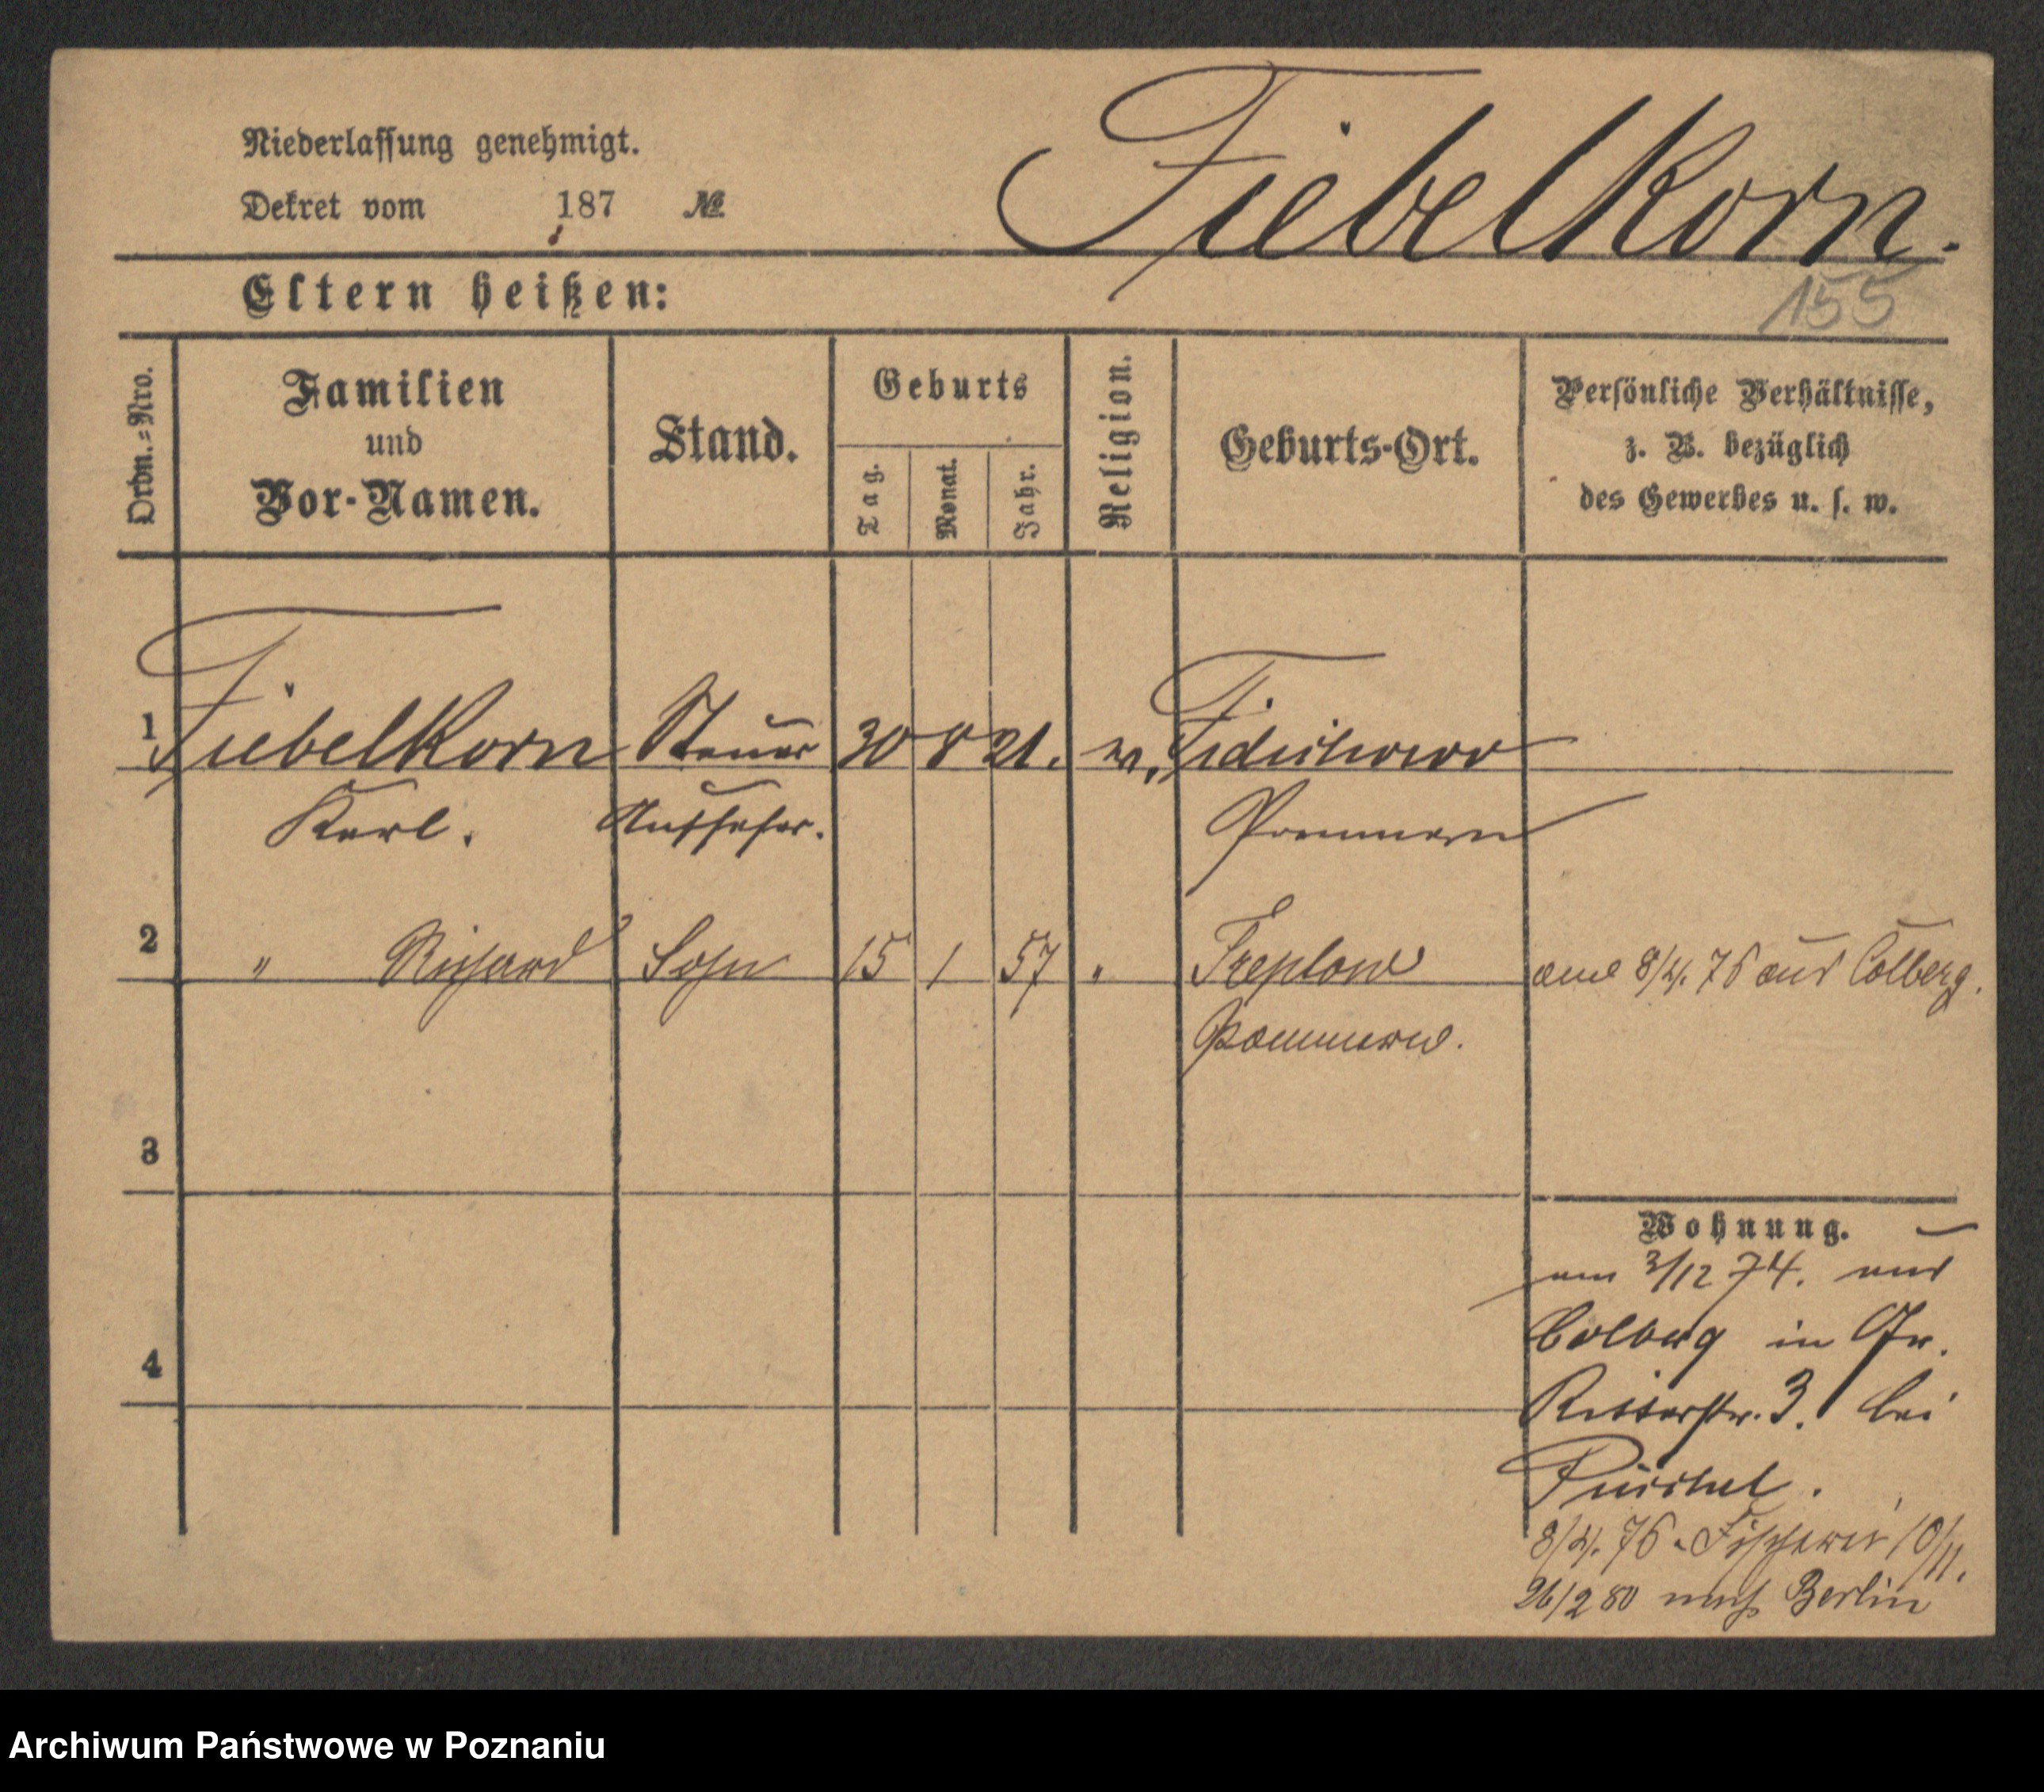 Niederlassung genehmigt.
Dekret vom 187 №
Fiebelkorn.
155
Eltern heißen:
Ordn.-Nro.
Familien
und
Vor-Namen.
Stand.
Geburts
Tag.
Monat.
Jahr.
Religion.
Geburts-Ort.
Persönliche Verhältnisse,
z. B. bezüglich
des Gewerbes u. s. w.
1 Fiebelkorn Steuer 30 8 21.
Karl. Aufseher. Pommern
2 " Richard Sohn 15 1 57 " Treptow am 8/4. 76 aus Colberg.
Pommern.
3
Wohnung.
am 3/12 74. aus
Colberg in Gr.
4
Ritterstr. 3. bei
8/4. 76. Fischerei 10/11.
26/2 80 nach Berlin
Archiwum Państwowe w Poznaniu